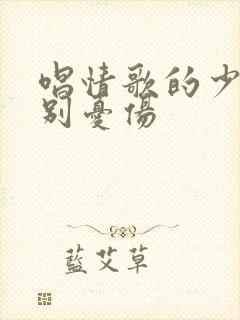 唱情歌的少
别憂傷
藍艾草